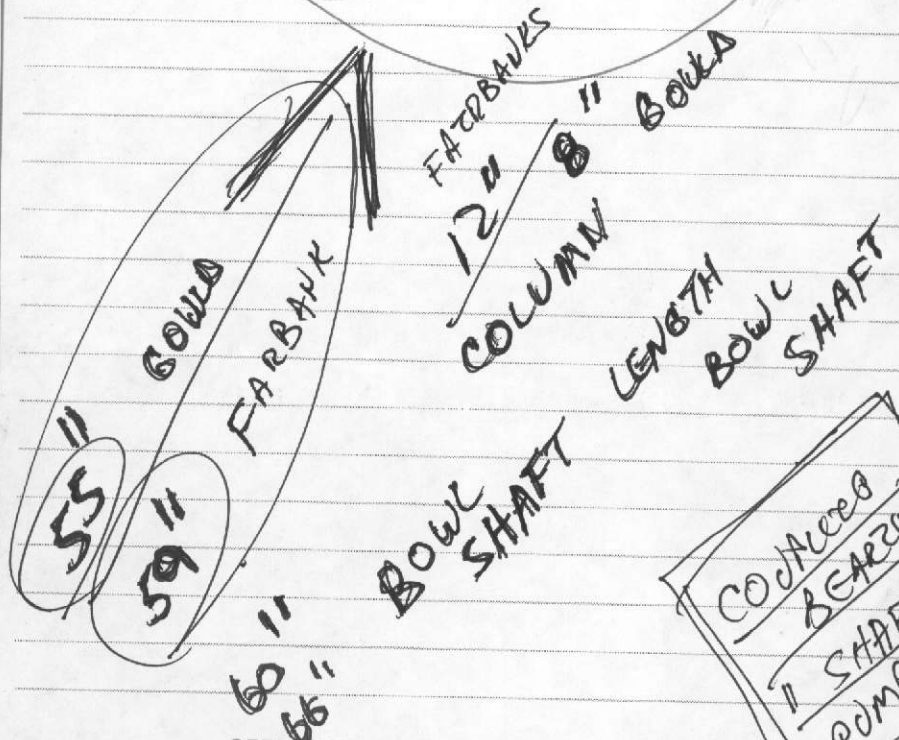 FAIRBANKS
12" / 8" GOULD
COLUMN
LENGTH
BOWL
SHAFT
55" GOULD
59" FARBANK
BOWL
SHAFT
60"
66"
BEARI
SHAF